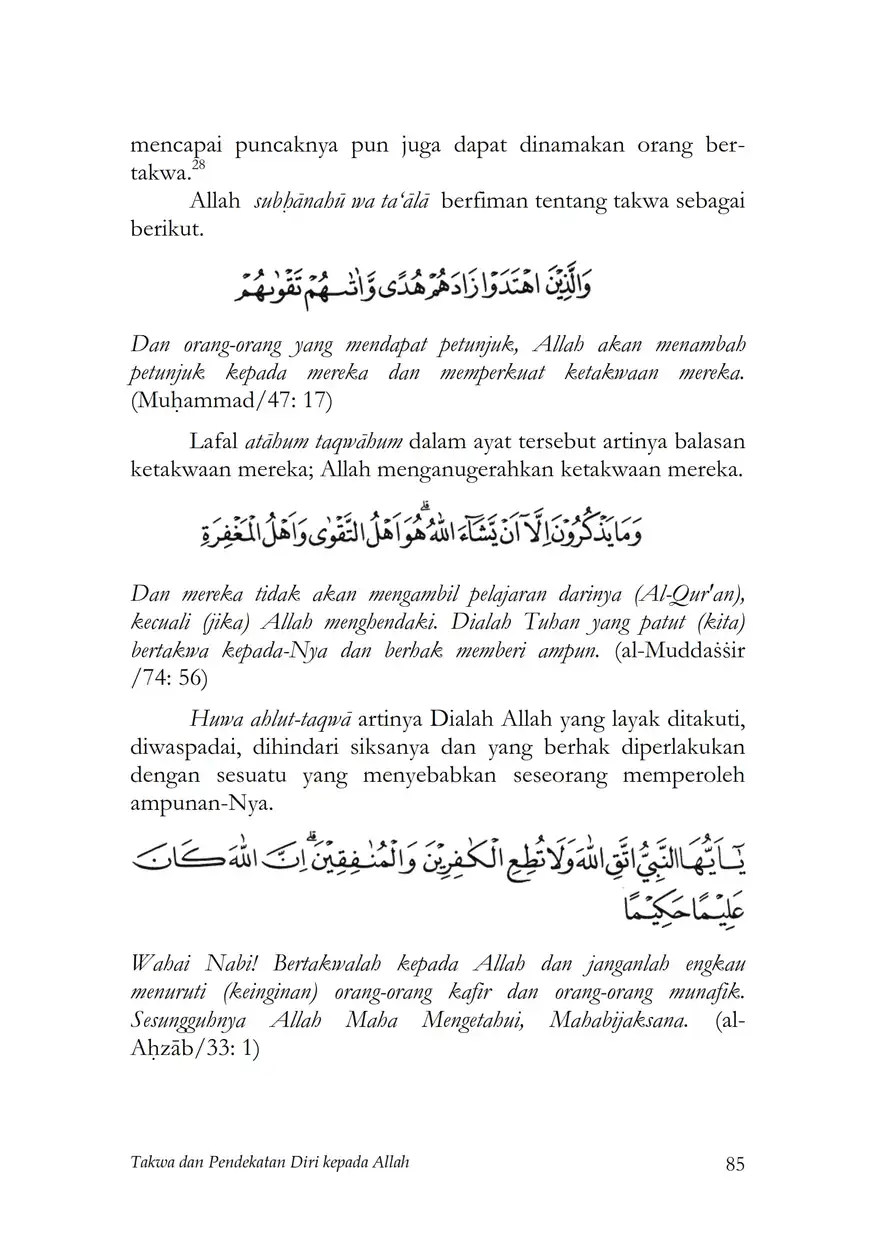 mencapai puncaknya pun juga dapat dinamakan orang ber-
takwa.28
Allah subḥānahū wa ta‘ālā berfiman tentang takwa sebagai
berikut.
وَالَّذِيْنَ اهْتَدَوْا زَادَهُمْ هُدًى وَّاٰتٰىهُمْ تَقْوٰىهُمْ
Dan orang-orang yang mendapat petunjuk, Allah akan menambah
petunjuk kepada mereka dan memperkuat ketakwaan mereka.
(Muḥammad/47: 17)
Lafal atāhum taqwāhum dalam ayat tersebut artinya balasan
ketakwaan mereka; Allah menganugerahkan ketakwaan mereka.
وَمَا يَذْكُرُوْنَ اِلَّآ اَنْ يَّشَاۤءَ اللّٰهُ ۗهُوَ اَهْلُ التَّقْوٰى وَاَهْلُ الْمَغْفِرَةِ
Dan mereka tidak akan mengambil pelajaran darinya (Al-Qur'an),
kecuali (jika) Allah menghendaki. Dialah Tuhan yang patut (kita)
bertakwa kepada-Nya dan berhak memberi ampun. (al-Muddaṡṡir
/74: 56)
Huwa ahlut-taqwā artinya Dialah Allah yang layak ditakuti,
diwaspadai, dihindari siksanya dan yang berhak diperlakukan
dengan sesuatu yang menyebabkan seseorang memperoleh
ampunan-Nya.
يٰٓاَيُّهَا النَّبِيُّ اتَّقِ اللّٰهَ وَلَا تُطِعِ الْكٰفِرِيْنَ وَالْمُنٰفِقِيْنَ ۗاِنَّ اللّٰهَ كَانَ
عَلِيْمًا حَكِيْمًا
Wahai Nabi! Bertakwalah kepada Allah dan janganlah engkau
menuruti (keinginan) orang-orang kafir dan orang-orang munafik.
Sesungguhnya Allah Maha Mengetahui, Mahabijaksana. (al-
Aḥzāb/33: 1)
Takwa dan Pendekatan Diri kepada Allah 85